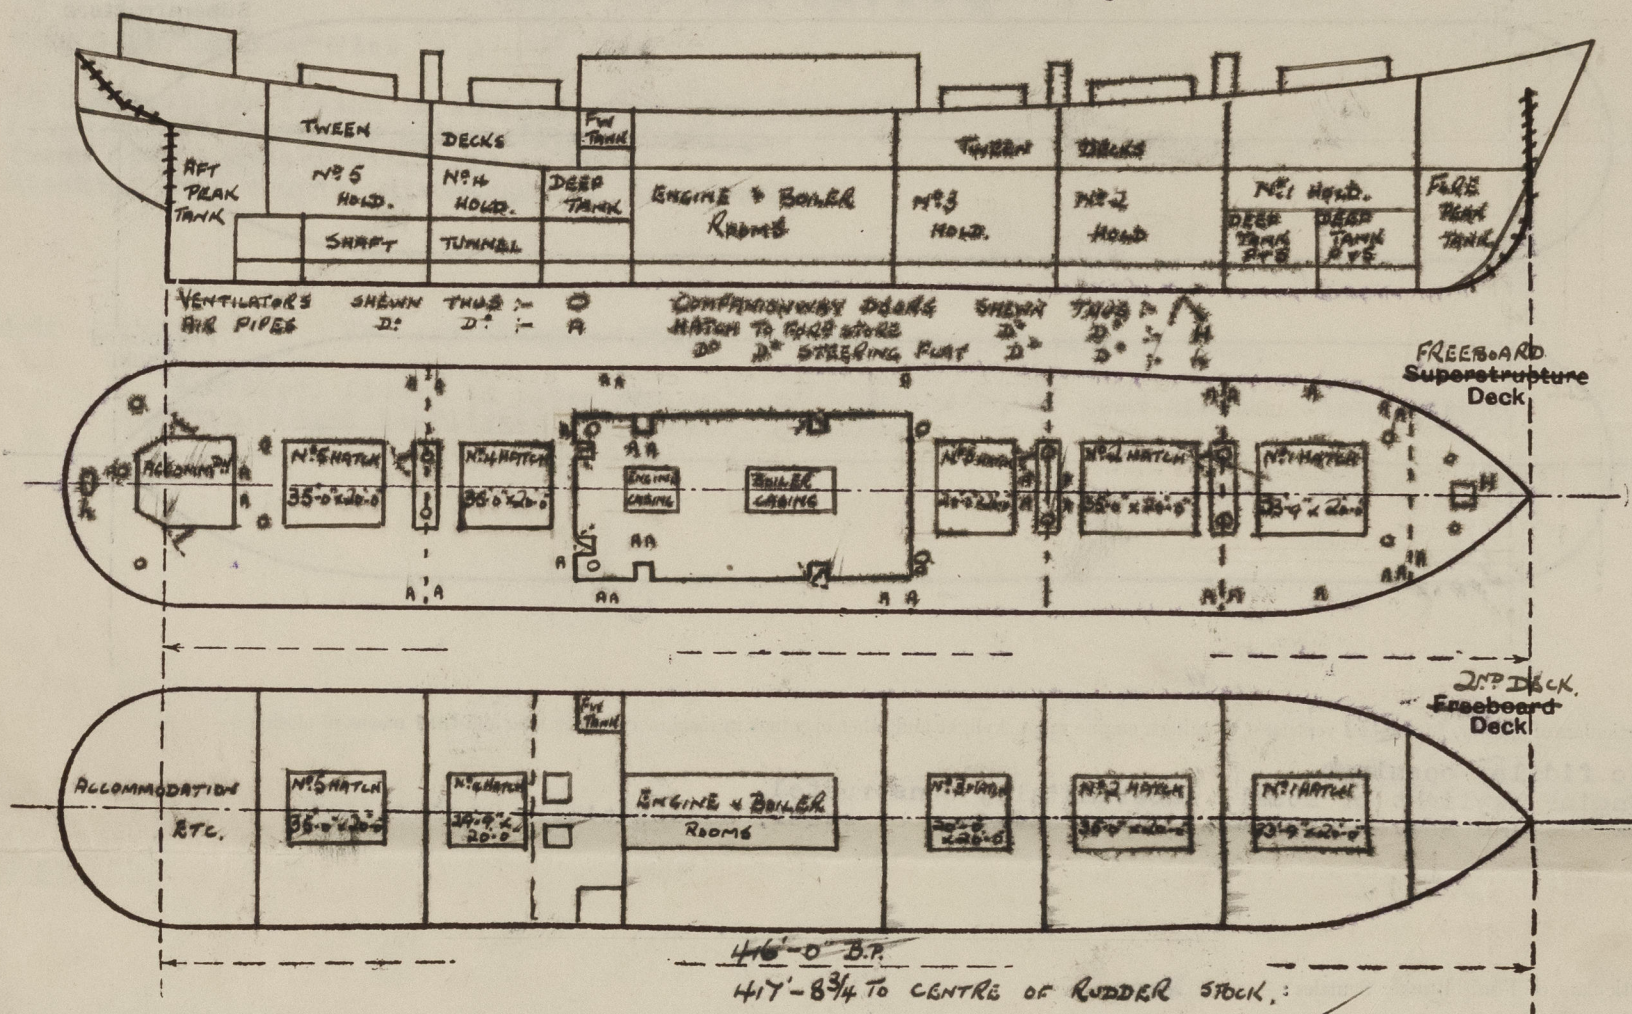 TWEEN DECKS
FW
TANK
TWEEN DECKS
AFT
PEAK
TANK
Nº 5
HOLD.
Nº 4
HOLD.
DEEP
TANK
ENGINE & BOILER
ROOMS
Nº 3
HOLD.
Nº 2
HOLD
Nº 1 HOLD.
DEEP
TANK
P & S
DEEP
TANK
P & S
FORE
PEAK
TANK
SHAFT TUNNEL
VENTILATORS SHEWN THUS :- O COMPANIONWAY DOORS SHEWN THUS :-
AIR PIPES Dº Dº :- A HATCH TO FORD STORE Dº Dº :- H
Dº Dº STEERING FLAT Dº Dº :-
FREEBOARD
Superstructure
Deck
ACCOMMDN
Nº 5 HATCH
35'-0" x 20'-0"
Nº 4 HATCH
35'-0" x 20'-0"
ENGINE
CASING
BOILER
CASING
Nº 3 HATCH
20'-0" x 20'-0"
Nº 2 HATCH
35'-0" x 20'-0"
Nº 1 HATCH
33'-9" x 20'-0"
H
2ND DECK.
Freeboard
Deck
FW
TANK
ACCOMMODATION
ETC.
Nº 5 HATCH
35'-0" x 20'-0"
Nº 4 HATCH
20'-0"
ENGINE & BOILER
ROOMS
Nº 3 HATCH
20'-0"
x 20'-0"
Nº 2 HATCH
35'-0" x 20'-0"
Nº 1 HATCH
33'-9" x 20'-0"
416'-0" B.P.
417'-8¾ TO CENTRE OF RUDDER STOCK.